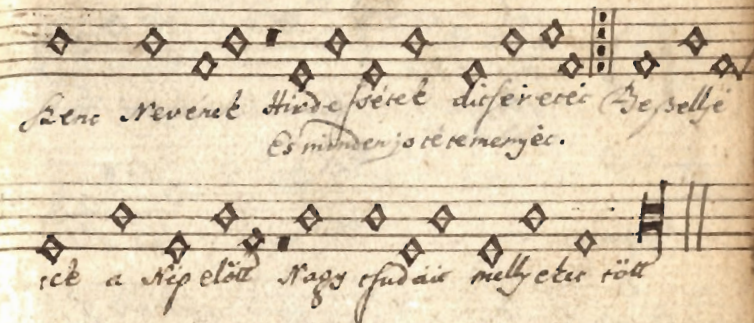 Szent Nevének Hirdessétek ditseretét Beszellyé
És minden jo tétemenyét.
tek a Nép elött Nagy tsudait mellyeket tött